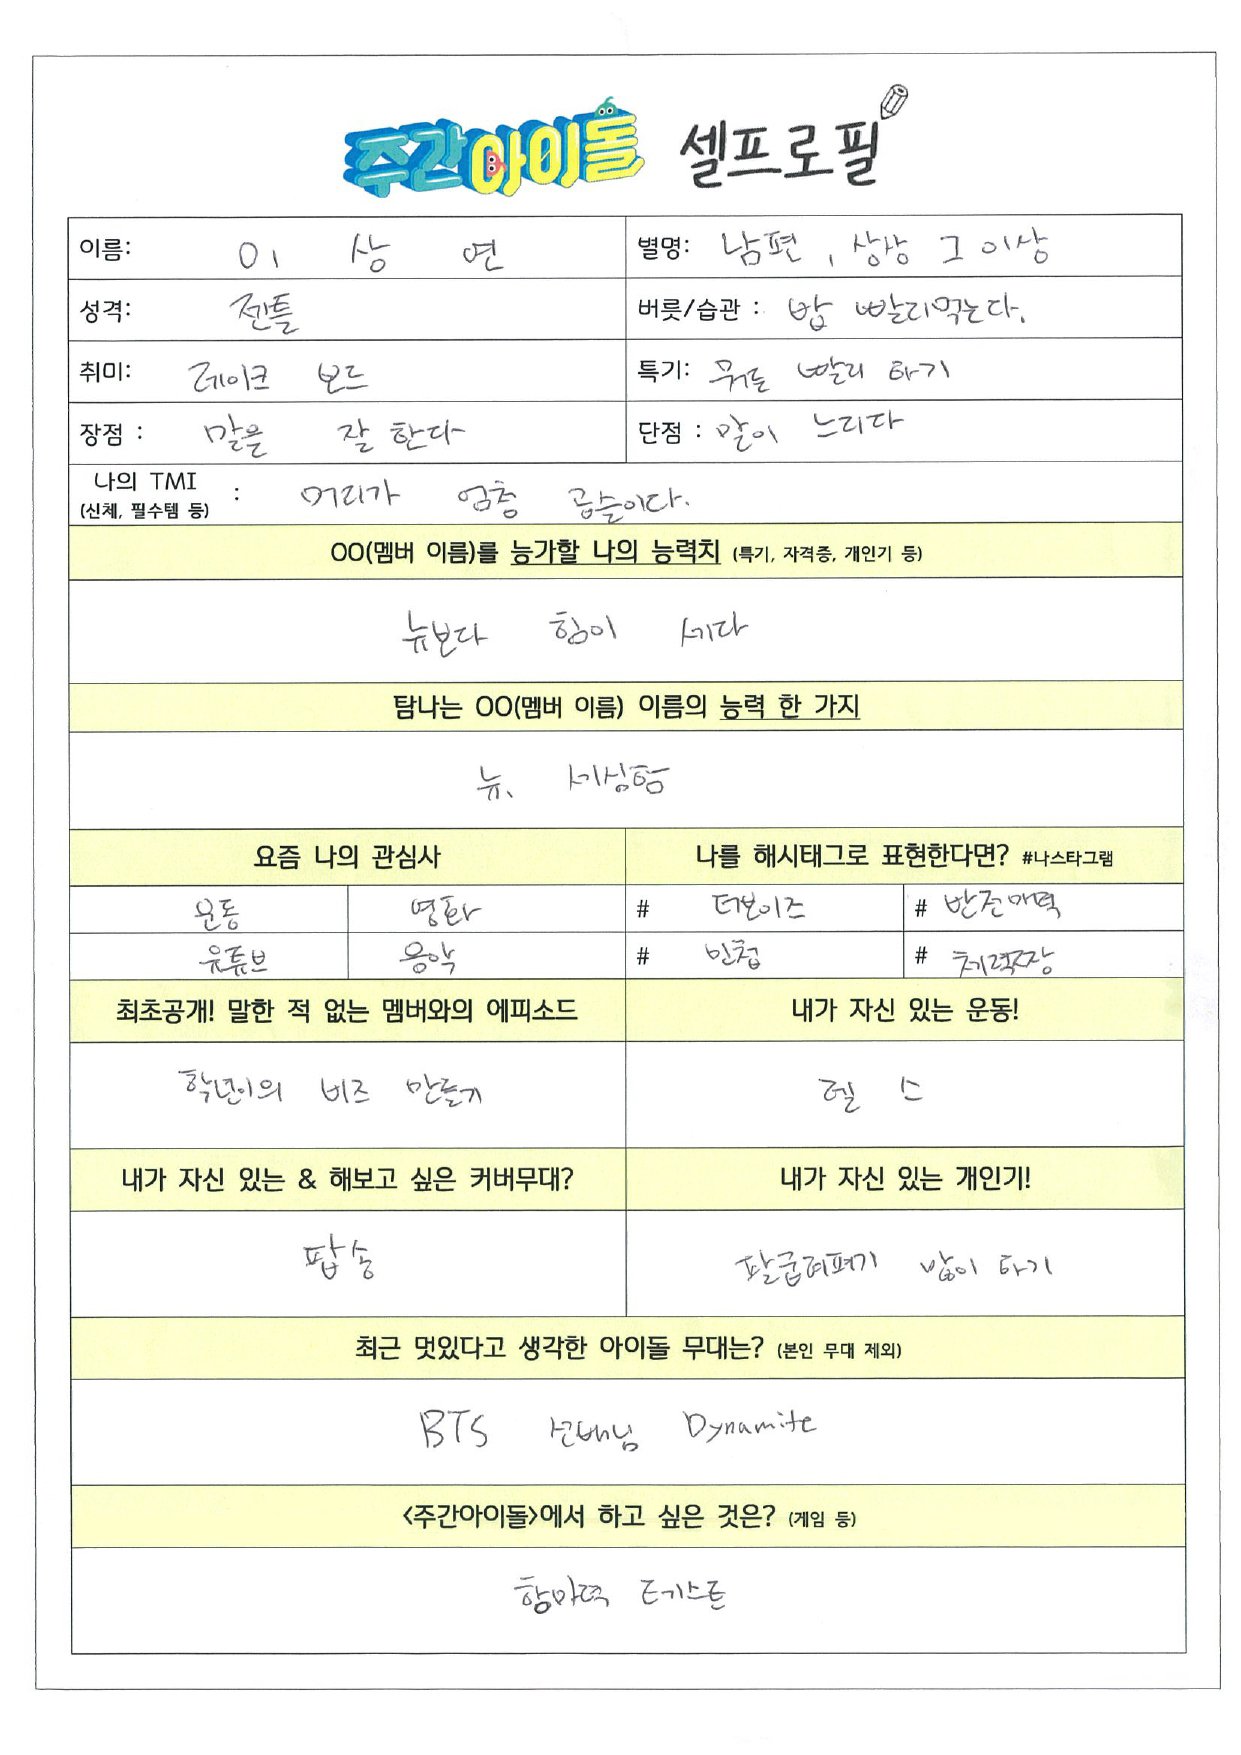 주간아이돌 셀프로필
이름: 이 상 연 별명: 남편, 상상 그 이상
성격: 젠틀 버릇/습관 : 밥 빨리먹는다.
취미: 레이크 보드 특기: 뭐든 빨리 하기
장점 : 말을 잘 한다 단점 : 말이 느리다
나의 TMI : 머리가 엄청 곱슬이다.
(신체, 필수템 등)
OO(멤버 이름)를 능가할 나의 능력치 (특기, 자격증, 개인기 등)
뉴보다 힘이 세다
탐나는 OO(멤버 이름) 이름의 능력 한 가지
뉴. 세심함
요즘 나의 관심사 나를 해시태그로 표현한다면? #나스타그램
운동 영화 # 더보이즈 # 반존매력
유튜브 음악 # 민첩 # 체력짱
최초공개! 말한 적 없는 멤버와의 에피소드 내가 자신 있는 운동!
학년이의 비즈 만들기 헬 스
내가 자신 있는 & 해보고 싶은 커버무대? 내가 자신 있는 개인기!
팝송 팔굽혀펴기 많이 하기
최근 멋있다고 생각한 아이돌 무대는? (본인 무대 제외)
BTS 선배님 Dynamite
<주간아이돌>에서 하고 싶은 것은? (게임 등)
항마력 테스트